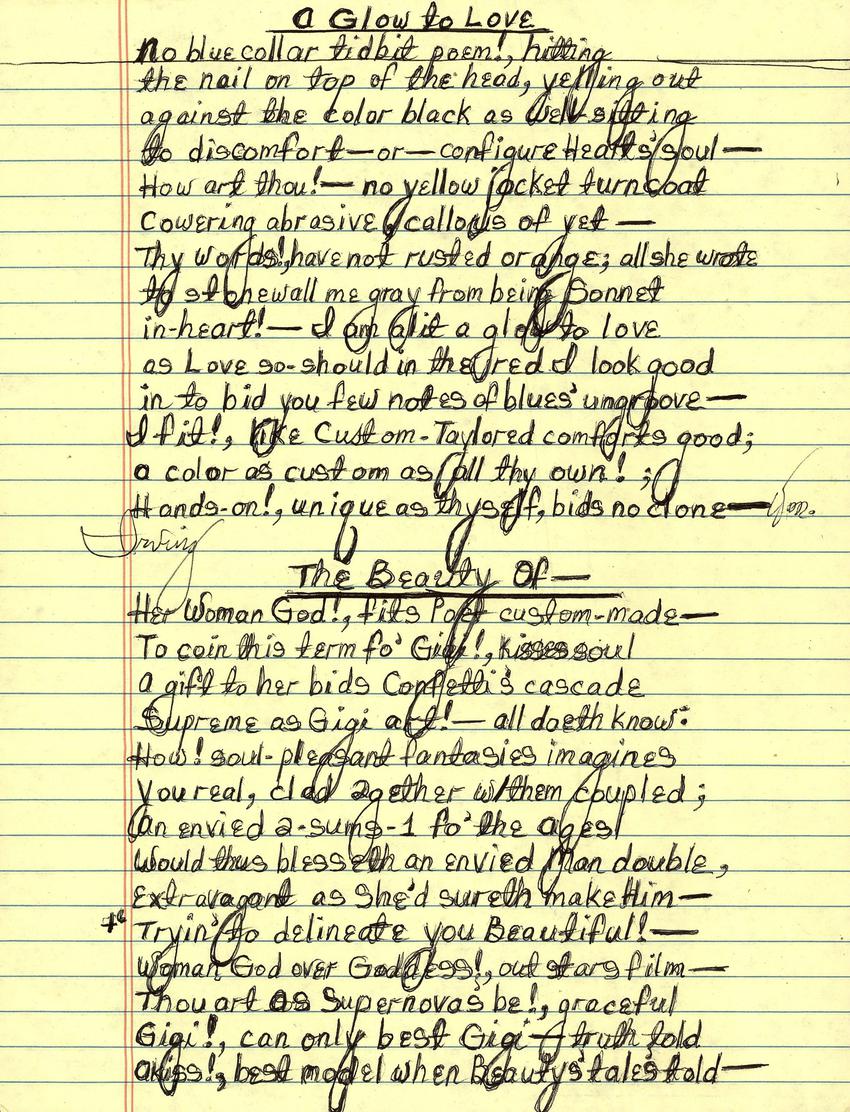 A Glow to Love
No blue collar tidbit poem!, hitting
the nail on top of the head, yelling out
against the color black as well-sitting
to discomfort—or—configure Heart's soul—
How art thou!— no yellow jacket turncoat
Cowering abrasive, callous of yet —
Thy words!, have not rusted orange; all she wrote
to stonewall me gray from being Sonnet
in-heart!— I am alit a glow to love
as Love so-should in the red I look good
in to bid you few notes of blues' ungroove—
I fit!, like Custom-Taylored comforts good;
a color as custom as all thy own! ;
Hands-on!, unique as thyself, bids no clone—
Irving
The Beauty Of—
Her Woman God!, fits Poet custom-made—
To coin this term fo' Gigi!, kisses soul
a gift to her bids Confetti's cascade
Supreme as Gigi art!— all doeth know:
How! soul-pleasant fantasies imagines
You real, clad 2gether w/them coupled ;
An envied 2-sums-1 fo' the ages!
Would thus blesseth an envied Man double,
Extravagant as She'd sureth make Him—
Tryin' to delineate you Beautiful!—
Woman God over Goddess!, out stars film—
Thou art as Supernovas be!, graceful
Gigi!, can only best Gigi— truth told
a kiss!, best model when Beauty's tales told—